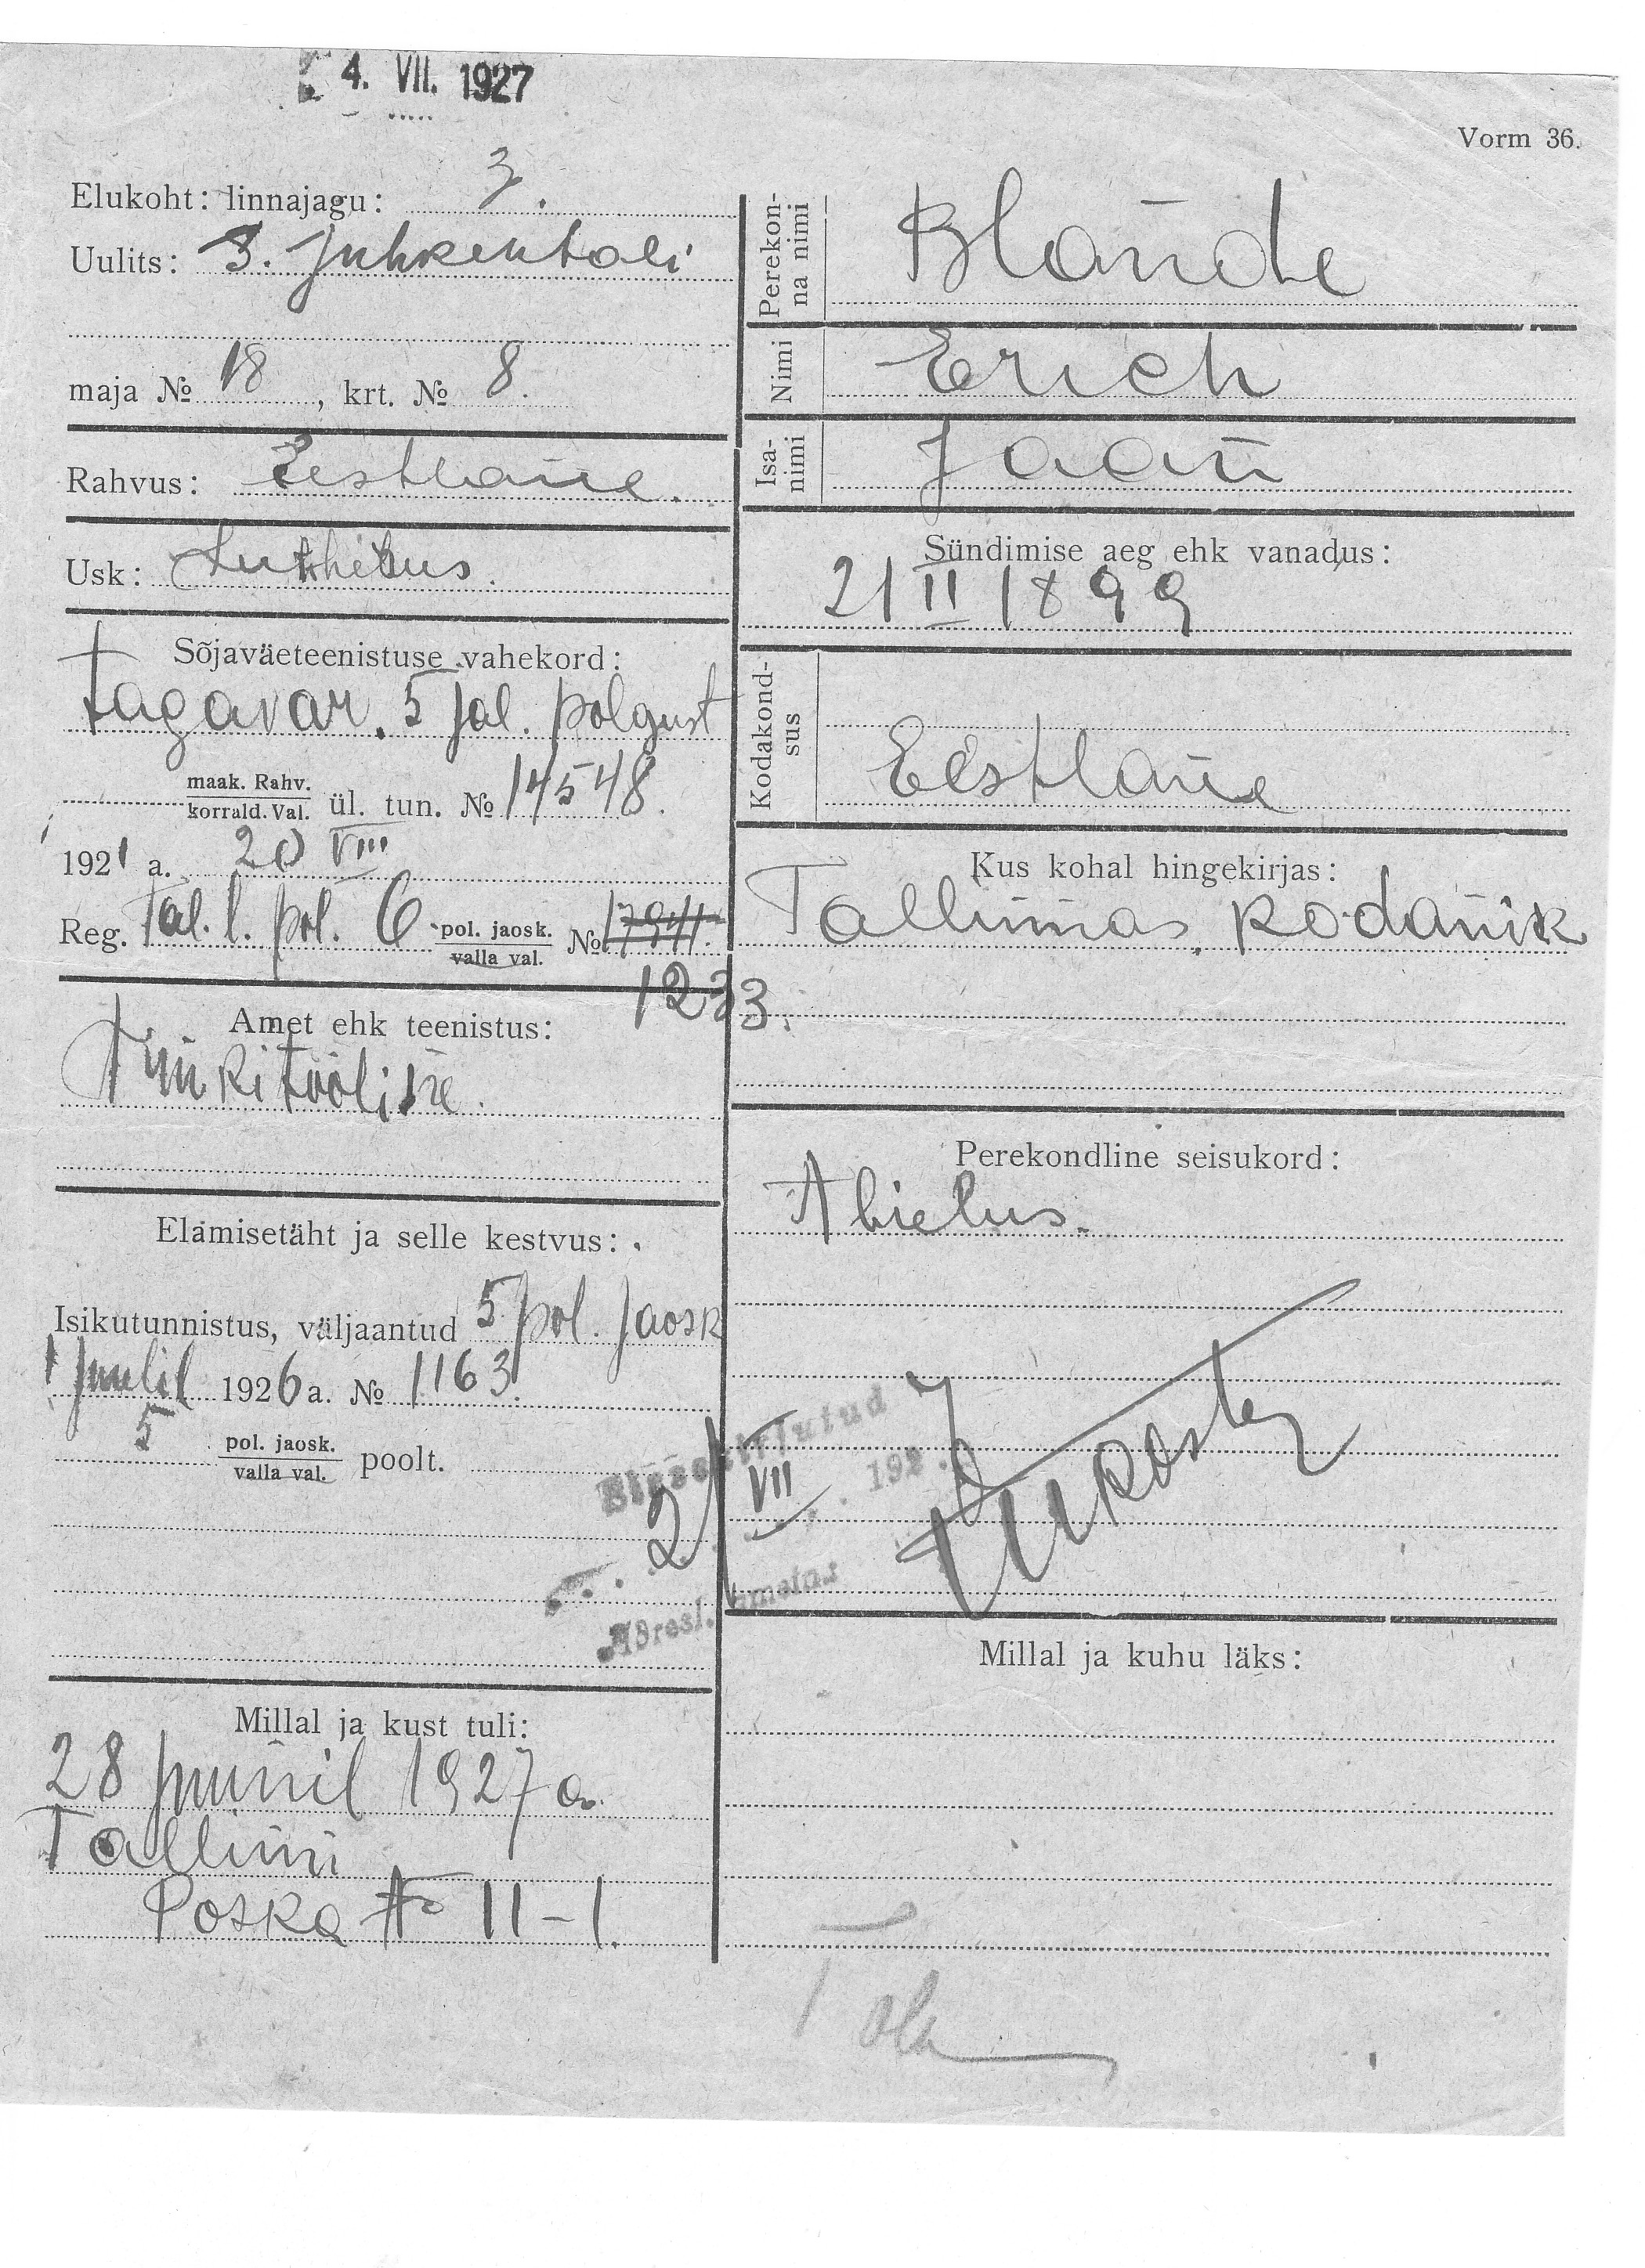 4. VII. 1927
Vorm 36.
Elukoht: linnajagu: 3.
Uulits: S. Juhkentali
maja № 18, krt. № 8.
Rahvus: Eestlane.
Usk: Luthe usus.
Sõjaväeteenistuse vahekord:
tagavar. 5 jal. polgust
maak. Rahv.
korrald. Val. ül. tun. № 14548.
1921 a. 20 VIII
Reg. Tal. l. pol. 6 pol. jaosk.
valla val. № 17941.
1233.
Amet ehk teenistus:
Trükitööline.
Elamisetäht ja selle kestvus:
Isikutunnistus, väljaantud 5 pol. jaosk
1 juulil 1926 a. № 1163.
5 pol. jaosk.
valla val. poolt.
Millal ja kust tuli:
28 juunil 1927 a.
Tallinn
Poska № 11-1.
Perekonna nimi
Blande
Nimi
Erich
Isanimi
Jaan
Sündimise aeg ehk vanadus:
21 II 1899
Kodakondsus
Eestlane
Kus kohal hingekirjas:
Tallinnas, kodanik
Perekondline seisukord:
Abielus.
Sissekirjutud
2 VII 192
Adresl.
Millal ja kuhu läks: